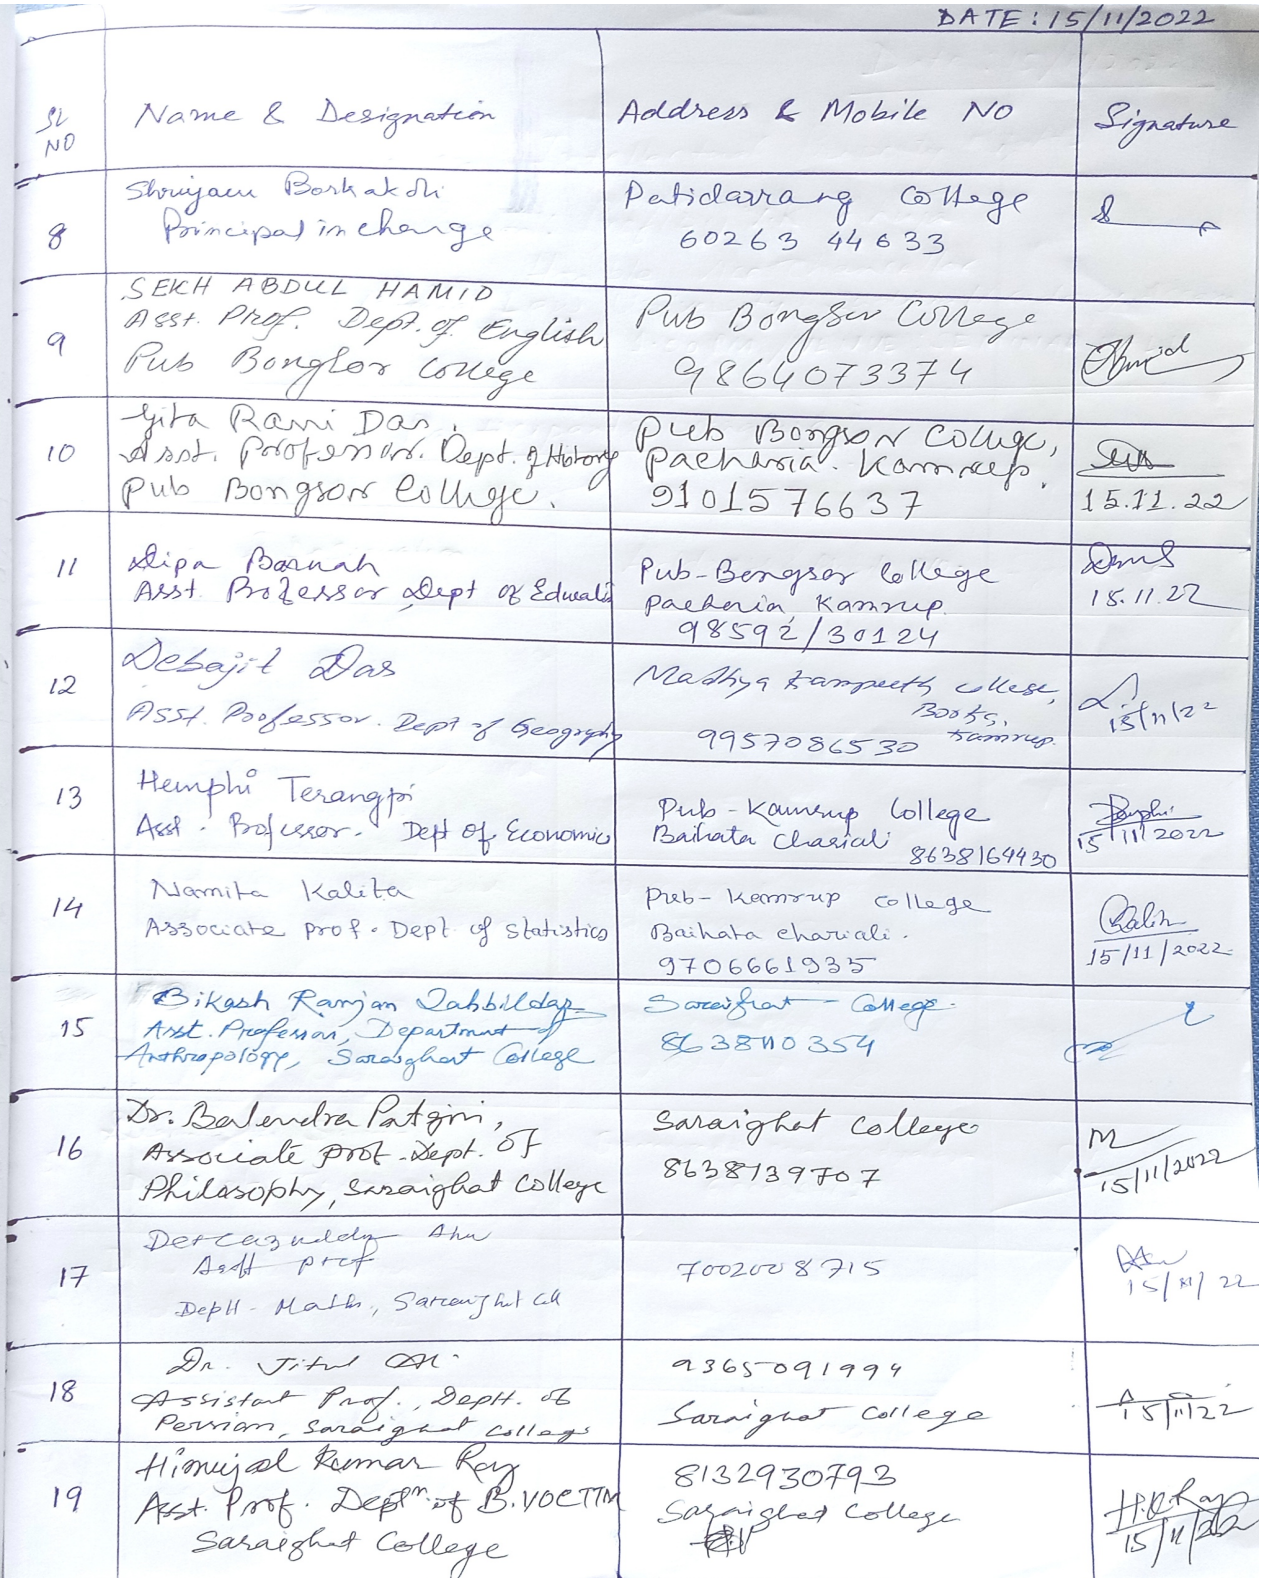 DATE: 15/11/2022
SL NO
Name & Designation
Address & Mobile NO
Signature
8
Borkakoti
Principal in charge
Patidarrang College
60263 44633
9
SEKH ABDUL HAMID
Asst. Prof. Dept. of English
Pub Bongsor College
Pub Bongsor College
9864073374
10
Gita Rani Das.
Asst. Professor. Dept. of History
Pub Bongsor College.
Pub Bongsor College,
Pacharia. Kamrup.
9101576637
15.11.22
11
Dipa Baruah
Asst. Professor, Dept of
Pub-Bongsor College
Pacharia, Kamrup.
98592/30124
15.11.22
12
Debajit Das
Asst. Professor. Dept of Geography
Madhya Kampeeth College,
Kamrup.
9957086530
15/11/22
13
Hemphi Terangpi
Asst. Professor. Dept of Economic
Pub-Kamrup College
Baihata Chariali
8638164430
15/11/2022
14
Namita Kalita
Associate prof. Dept of Statistics
Pub-Kamrup College
Baihata chariali.
9706661935
Kalita
15/11/2022
15
Bikash Ranjan
Asst. Professor, Department of
Anthropology, Saraighat College
Saraighat College.
8638110354
16
Dr. Balendra Patgiri,
Associate prof. Dept. of
Philosophy, Saraighat College
Saraighat College
8638139707
15/11/2022
17
Asstt prof
Deptt - Math, Saraighat
7002008715
15/11/22
18
Dr. Jitul Ali
Assistant Prof., Deptt. of
Persian, Saraighat College
9365091994
Saraighat College
15/11/22
19
Himujal Kumar Ray
Asst. Prof. Deptt. of B.VOC TTM
Saraighat College
8132930793
Saraighat College
H.K Ray
15/11/2022